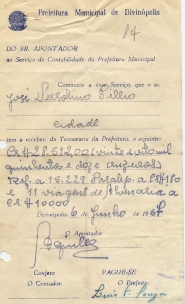 Prefeitura Municipal de Divinópolis
14
DO SR. APONTADOR
ao Serviço de Contabilidade da Prefeitura Municipal
Comunico a esse Serviço, que o sr.
José Filho
cidade
tem a receber, da Tesouraria da Prefeitura, o seguinte:
CR$ 28.512,00 (vinte e oito mil
quinhentos e doze cruzeiros)
ref. a 15.229. a CR$180
e 11 viagens de a
CR$10000
Divinópolis, 6 de Junho de 196
O Apontador
Confere
O Contador.
PAGUE-SE
O Prefeito.